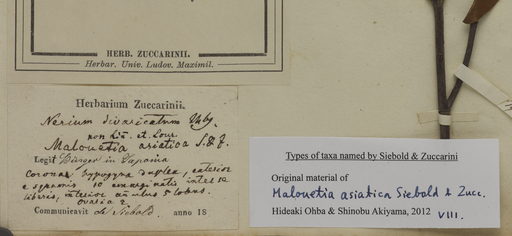 HERB. ZUCCARINII.
Herbar. Univ. Ludov. Maximil.
Herbarium Zuccarinii.
Nerium divaricatum, Thbg.
non Lin. et Lour.
Malouetia asiatica S. & Z.
Legit Bürger in Japonia
Corona hypogyna duplex, exterior
e squamis 10 emarginatis inter se
liberis, interior annulus 5 lobus.
ovaria 2.
Communicavit de Siebold. anno 18
Types of taxa named by Siebold & Zuccarini
Original material of
Malouetia asiatica Siebold & Zucc.
Hideaki Ohba & Shinobu Akiyama, 2012 VIII.